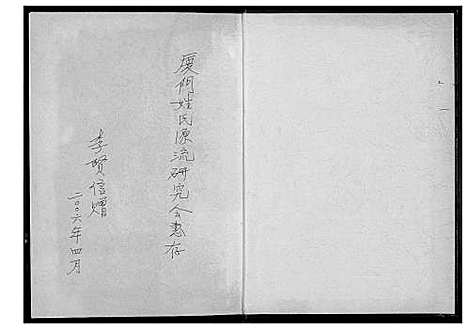 厦门姓氏源流研究会惠存
李贤信赠
二〇〇六年四月